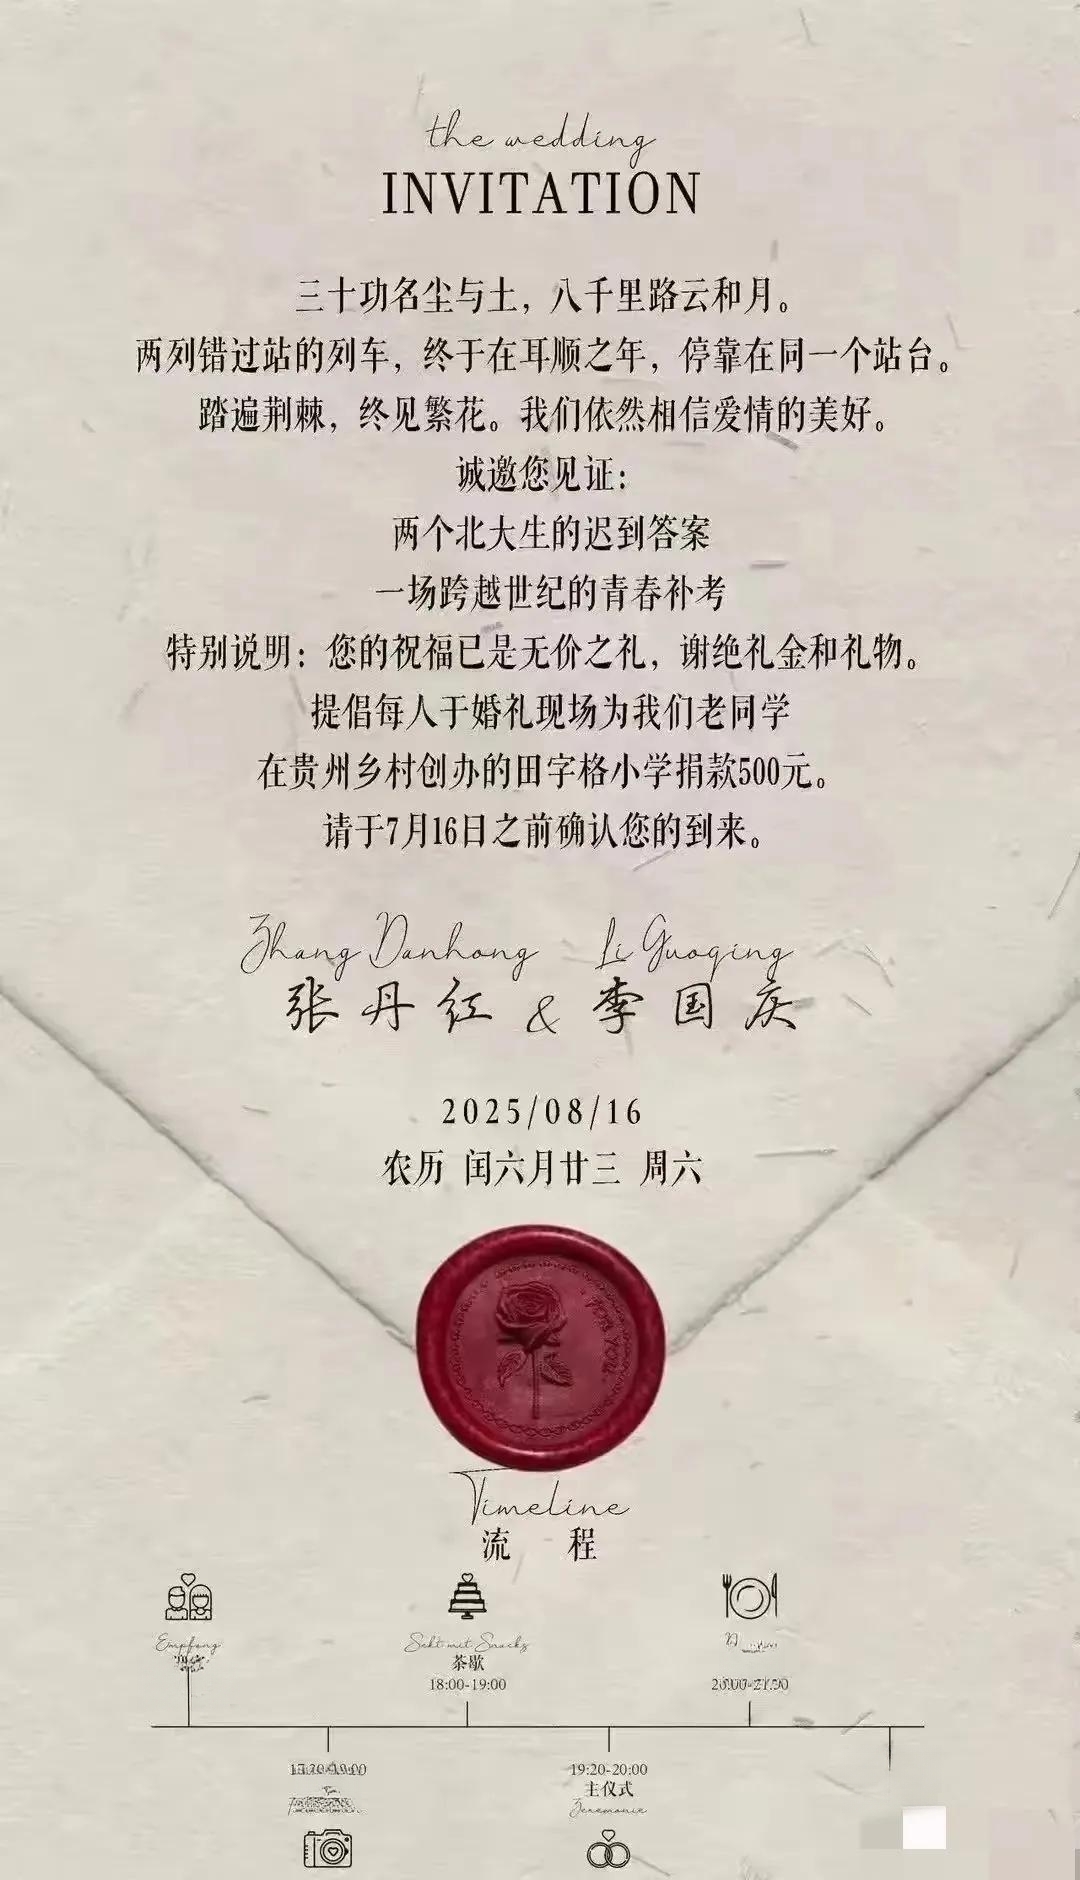 the wedding
INVITATION
三十功名尘与土，八千里路云和月。
两列错过站的列车，终于在耳顺之年，停靠在同一个站台。
踏遍荆棘，终见繁花。我们依然相信爱情的美好。
诚邀您见证：
两个北大生的迟到答案
一场跨越世纪的青春补考
特别说明：您的祝福已是无价之礼，谢绝礼金和礼物。
提倡每人于婚礼现场为我们老同学
在贵州乡村创办的田字格小学捐款500元。
请于7月16日之前确认您的到来。
Zhang Danhong Li Guoqing
张丹红 & 李国庆
2025/08/16
农历 闰六月廿三 周六
FOR YOU
Timeline
流 程
Empfang
Sekt mit Snacks
茶歇
18:00-19:00
19:20-20:00
主仪式
Zeremonie